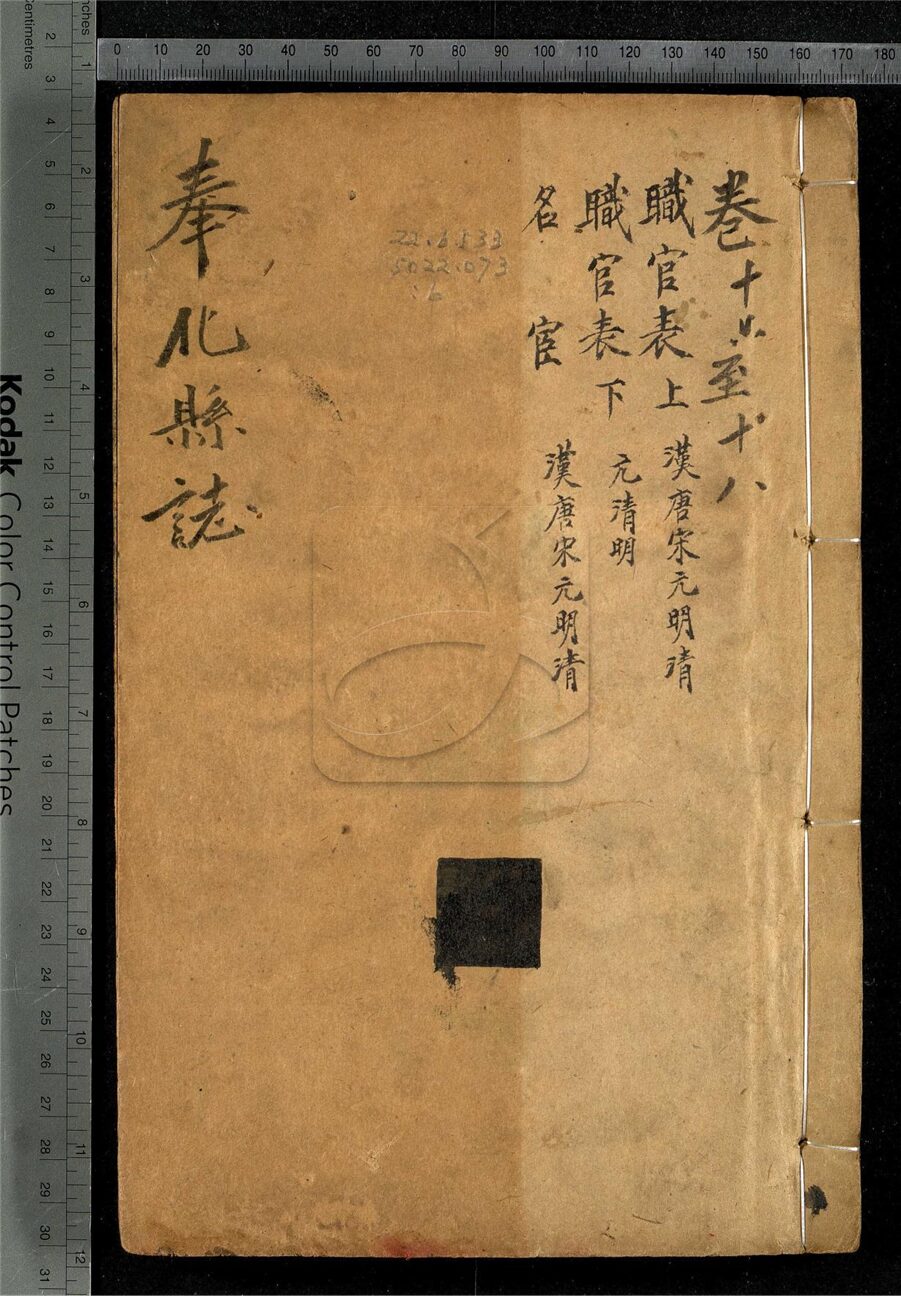 卷十六至十八
職官表上 漢唐宋元明清
職官表下 元清明
名宦 漢唐宋元明清
奉化縣誌
22.6533
5022.073
:6
0 10 20 30 40 50 60 70 80 90 100 110 120 130 140 150 160 170 180
Centimetres
2 3 4 5 6 7 8 9 10 11 12 13 14 15 16 17 18 19 20 21 22 23 24 25 26 27 28 29 30 31
Inches
1 2 3 4 5 6 7 8 9 10 11 12
Kodak Color Control Patches